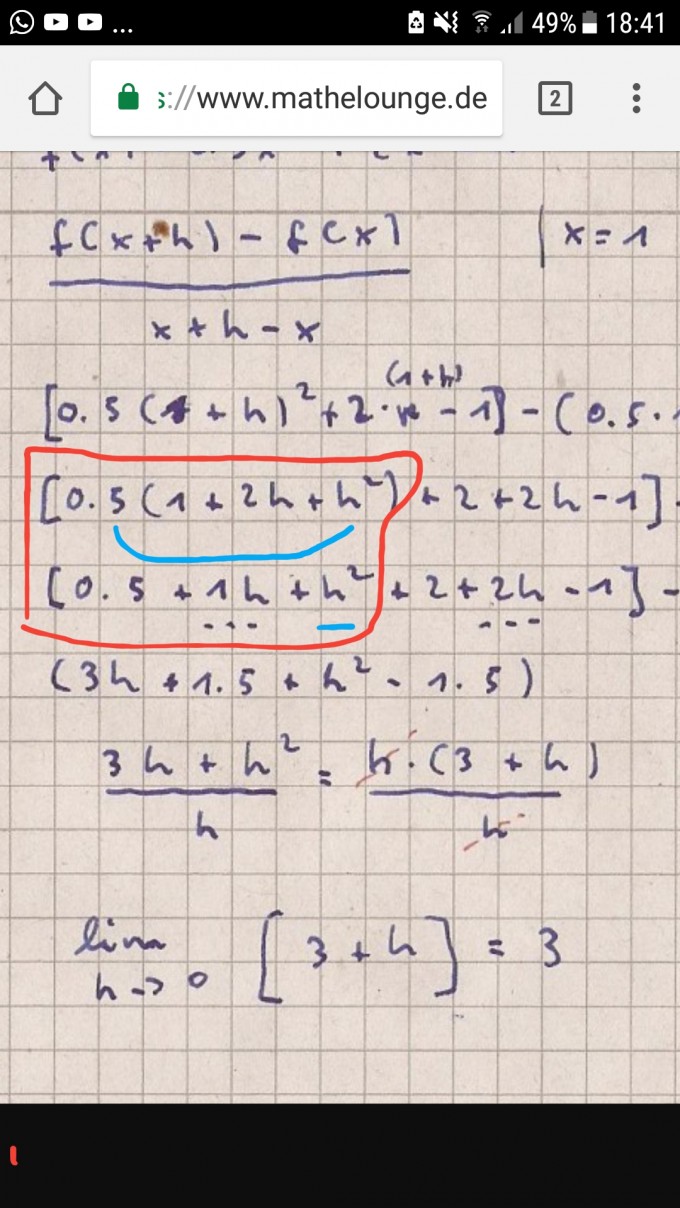 ... 49% 18:41
s://www.mathelounge.de 2
f(x+h) - f(x) | x = 1
x + h - x
(1+h)
[0.5 (1 + h)² + 2 · - 1] - (0.5 ·
[0.5 (1 + 2h + h²) + 2 + 2h - 1]
[0.5 + 1h + h² + 2 + 2h - 1] -
(3h + 1.5 + h² - 1.5)
3h + h² = h · (3 + h)
h h
lim [3 + h] = 3
h -> 0